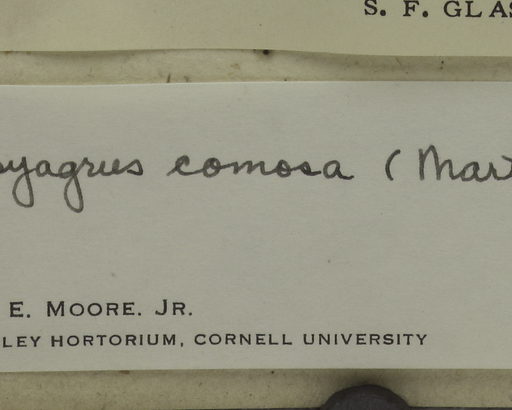 S. F. GLAS
yagrus comosa (Mart
E. MOORE. JR.
LEY HORTORIUM, CORNELL UNIVERSITY